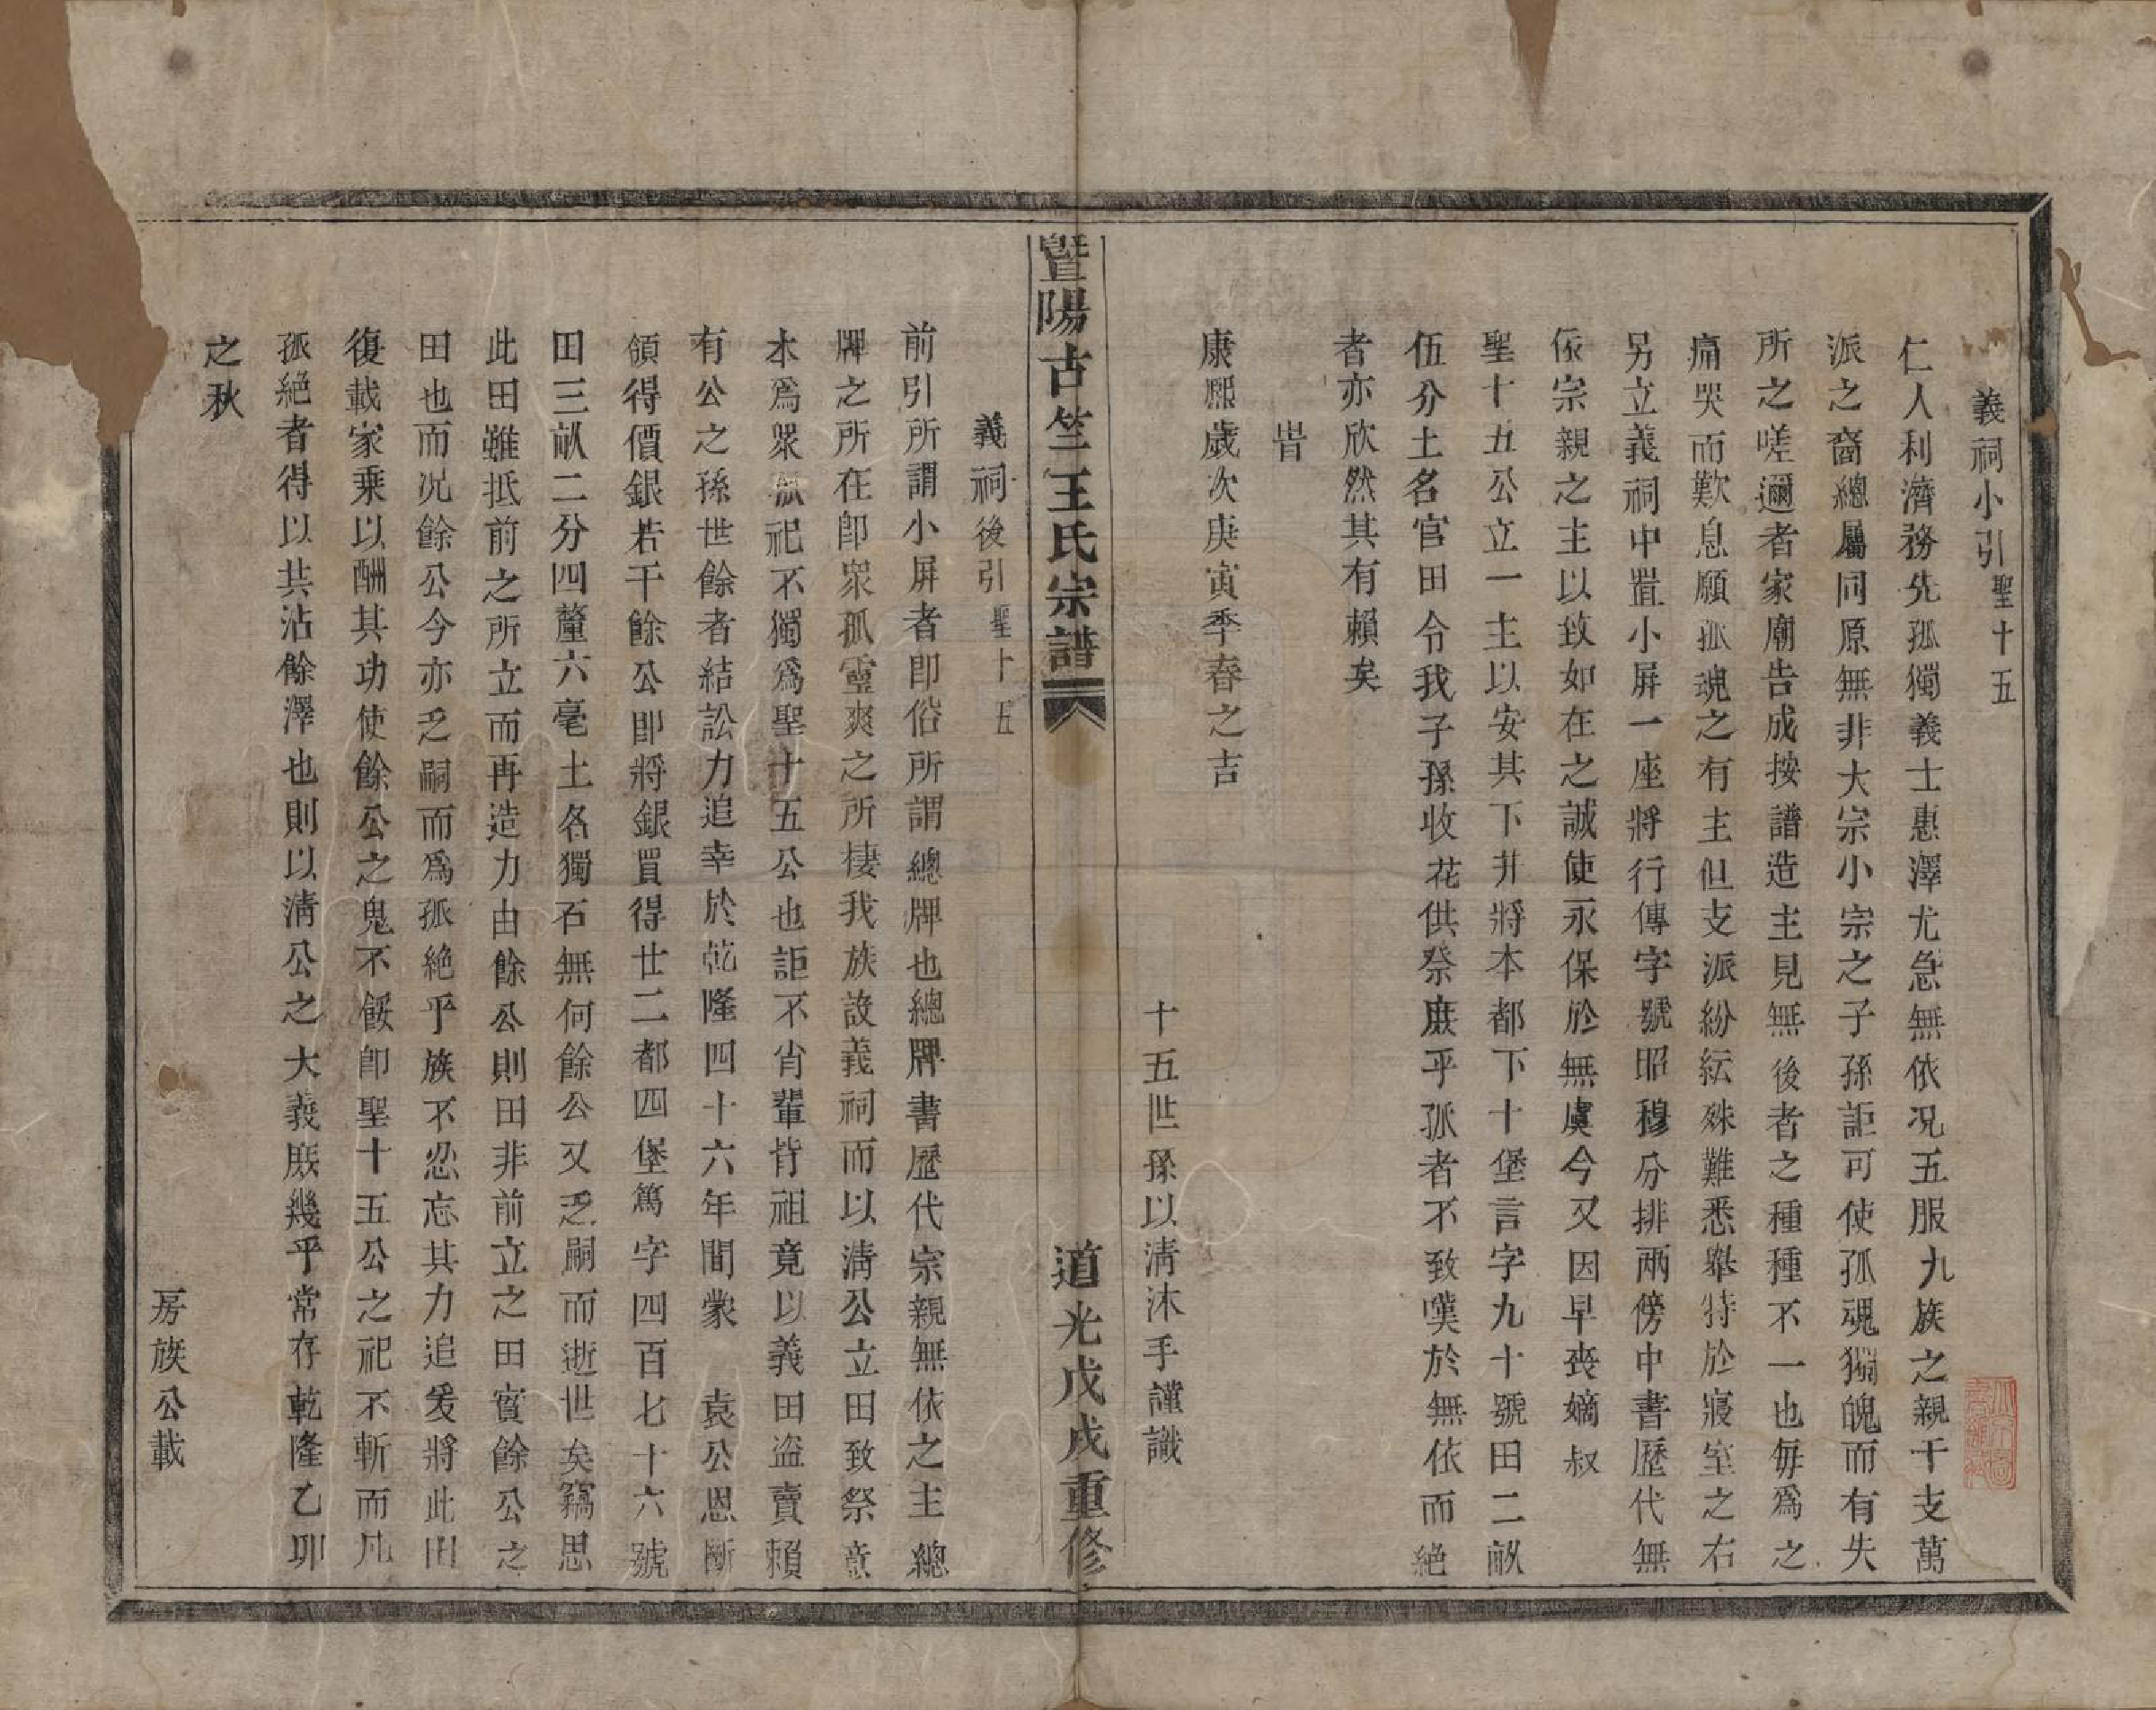 義祠小引聖十五
仁人利濟務先孤獨義士惠澤尤急無依况五服九族之親干支萬
派之裔總屬同原無非大宗小宗之子孫詎可使孤魂獨魄而有失
所之嗟邇者家廟告成按譜造主見無後者之種種不一也每爲之
痛哭而歎息願孤魂之有主但支派紛紜殊難悉舉特於寢室之右
另立義祠中置小屏一座將行傳字號昭穆分排两傍中書歷代無
依宗親之主以致如在之誠使永保於無虞今又因早喪嫡叔
聖十五公立一主以安其下幷將本都下十堡言字九十號田二畝
伍分土名官田令我子孫收花供祭庶乎孤者不致嘆於無依而絕
者亦欣然其有賴矣
旹
康熙歲次庚寅季春之吉
十五世孫以淸沐手謹識
暨陽古竺王氏宗譜
道光戊戌重修
義祠後引聖十五
前引所謂小屏者即俗所謂總牌也總牌書歷代宗親無依之主總
牌之所在即衆孤靈爽之所棲我族設義祠而以淸公立田致祭意
本爲衆孤祀不獨爲聖十五公也詎不肖輩背祖竟以義田盜賣賴
有公之孫世餘者結訟力追幸於乾隆四十六年間蒙 袁公恩斷
領得價銀若干餘公即將銀買得廿二都四堡篤字四百七十六號
田三畝二分四釐六毫土名獨石無何餘公又乏嗣而逝世矣竊思
此田雖抵前之所立而再造力由餘公則田非前立之田實餘公之
田也而况餘公今亦乏嗣而爲孤絕乎族不忍忘其力追爰將此田
復載家乘以酬其功使餘公之鬼不餒即聖十五公之祀不斬而凡
孤絕者得以共沾餘澤也則以淸公之大義庶幾乎常存乾隆乙卯
之秋
房族公載